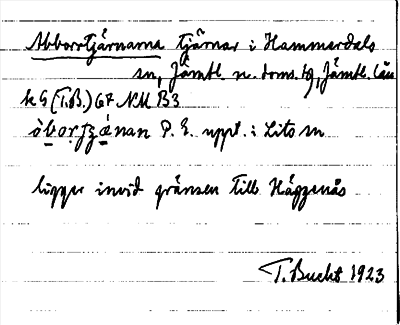 Abborrtjärnarna tjärnar i Hammerdals
sn, Jämtl. n. doms. tg, Jämtl. län
k G (T.B.) 67 NM B3
P. E. uppt. i Lits sn
ligger invid gränsen till Häggenås
T. Bucht 1923